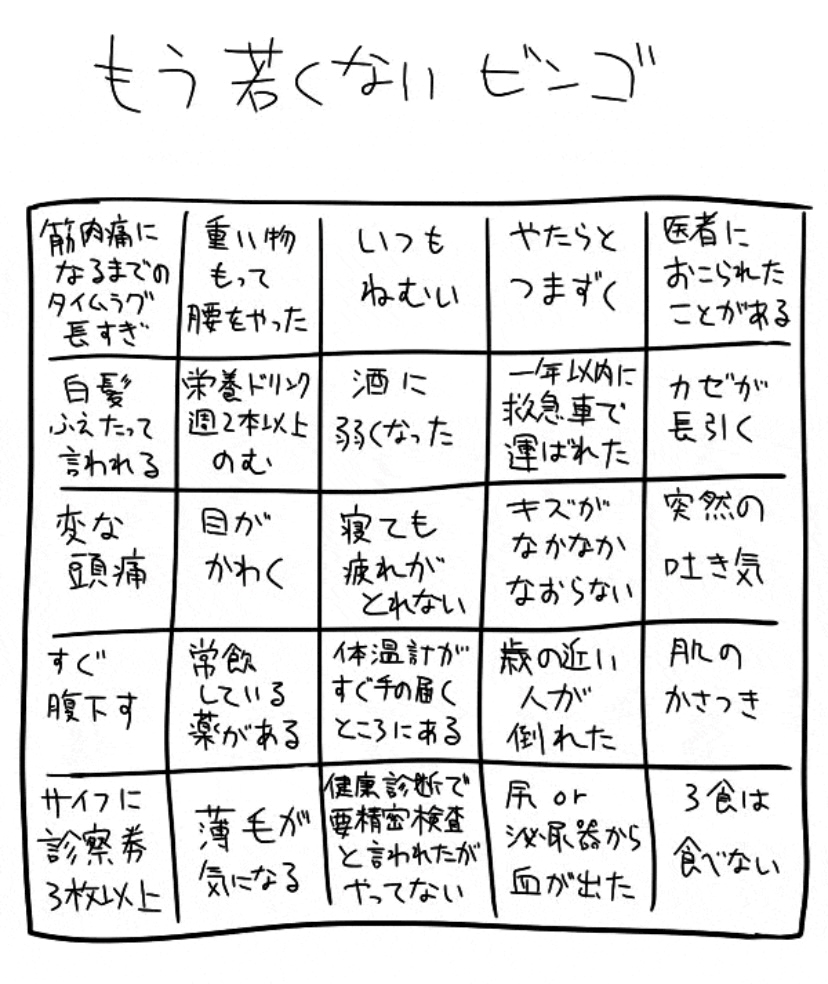 もう若くない ビンゴ
筋肉痛に
なるまでの
タイムラグ
長すぎ
重い物
もって
腰をやった
いつも
ねむい
やたらと
つまずく
医者に
おこられた
ことがある
白髪
ふえたって
言われる
栄養ドリンク
週2本以上
のむ
酒に
弱くなった
一年以内に
救急車で
運ばれた
カゼが
長引く
変な
頭痛
目が
かわく
寝ても
疲れが
とれない
キズが
なかなか
なおらない
突然の
吐き気
すぐ
腹下す
常飲
している
薬がある
体温計が
すぐ手の届く
ところにある
歳の近い
人が
倒れた
肌の
かさつき
サイフに
診察券
3枚以上
薄毛が
気になる
健康診断で
要精密検査
と言われたが
やってない
尻 or
泌尿器から
血が出た
3食は
食べない